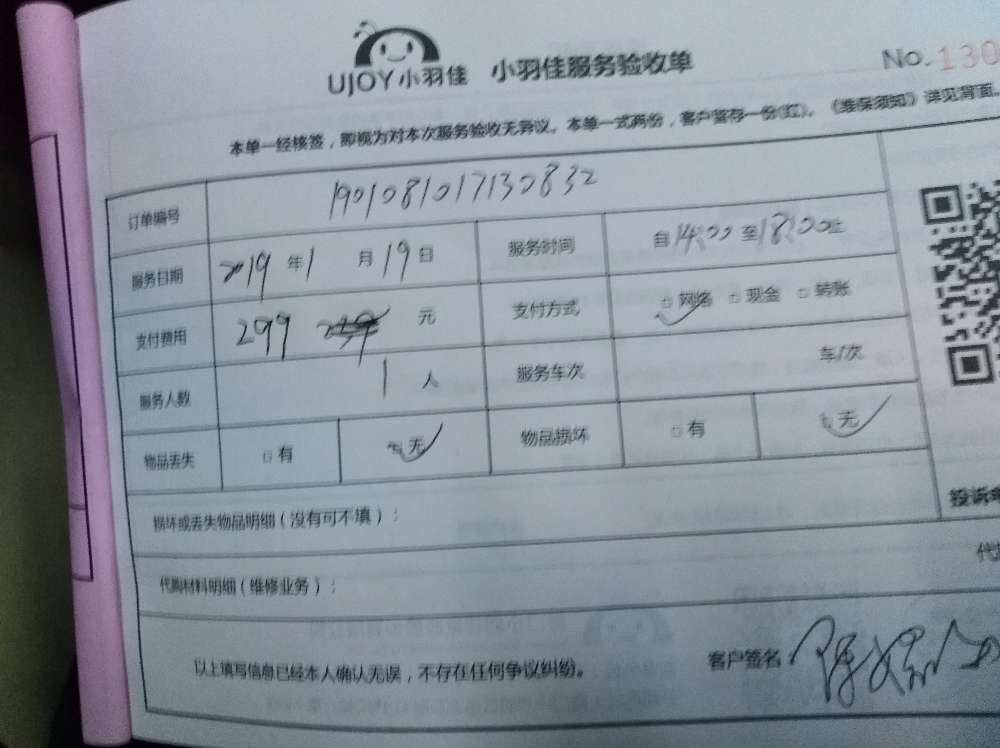 UJOY小羽佳 小羽佳服务验收单 No.130
本单一经核签，即视为对本次服务验收无异议。本单一式两份，客户留存一份(红)。《维保须知》详见背面。
订单编号 1901081017130832
服务日期 2019年1月19日 服务时间 自14:00至18:00止
支付费用 299 元 支付方式 网络 现金 转账
服务人数 1人 服务车次 车/次
物品丢失 有 无 物品损坏 有 无
投诉
损坏或丢失物品明细（没有可不填）：
代
代购材料明细（维修业务）：
以上填写信息已经本人确认无误，不存在任何争议纠纷。 客户签名